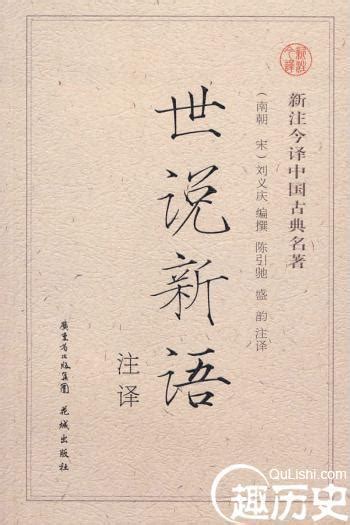 新注今译中国古典名著
（南朝 宋）刘义庆 编撰 陈引驰 盛韵 注译
世说新语
注译
广东省出版集团
花城出版社
QuLishi.com
趣历史